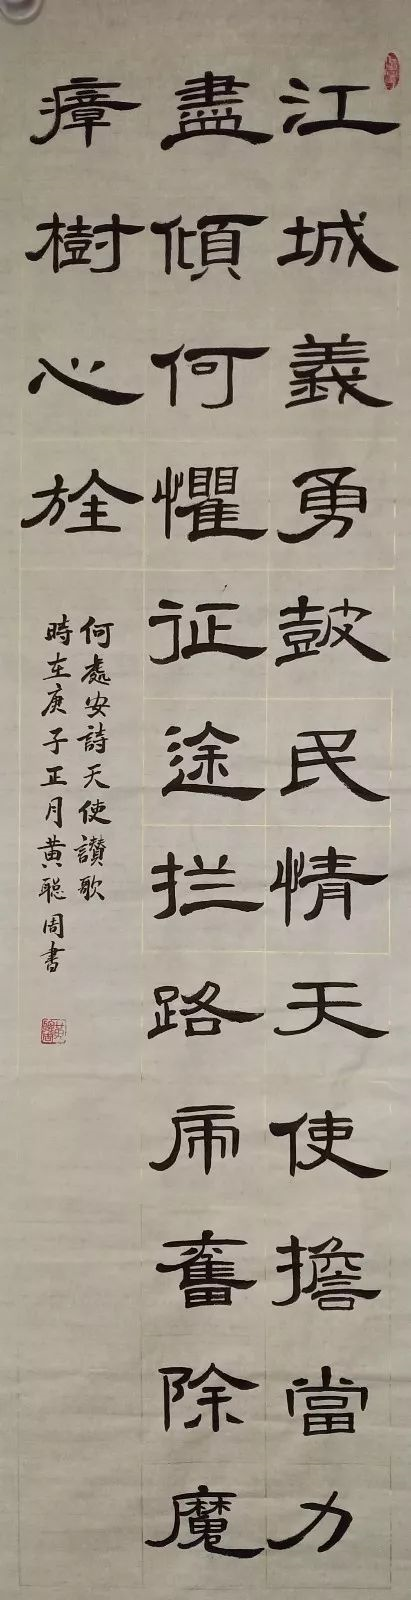 江城義勇鼓民情天使擔當力
盡傾何懼征途拦路虎奮除魔
瘴樹心旌
何處安詩天使讚歌
時在庚子正月黄聰周書